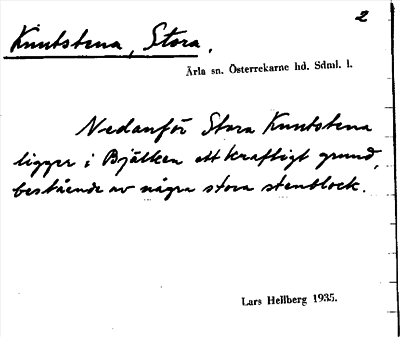 2
Knutstena, Stora.
Ärla sn. Österrekarne hd. Sdml. l.
Nedanför Stora Knutstena
ligger i Bjälken ett kraftigt grund,
bestående av några stora stenblock.
Lars Hellberg 1935.